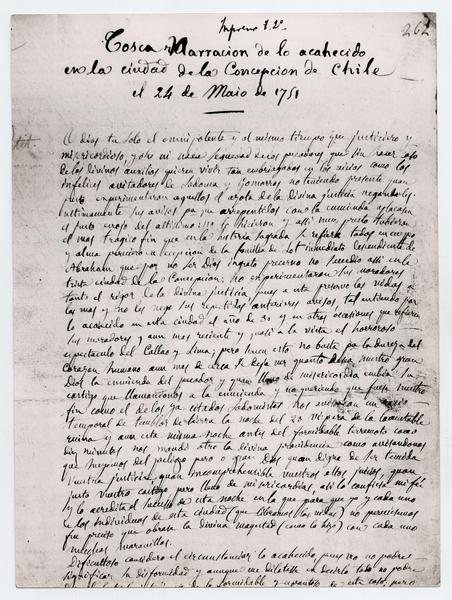 Impreso 1.2º
262
Tosca Narracion de lo acahecido
en la ciudad de la Concepcion de Chile
el 24 de Maio de 1751
O dios tu solo el omnipotente y al mismo tiempo que justiciero y
misericordioso, y oh mi necia seguedad de los pecadores que sin hacer caso
de los divinos auxilios quieren vivir tan embriagados en los vicios como los
infelices avitadores de Sodoma y Gomorra no teniendo presente quan
justo experimentaron aquellos el azote de la Divina justicia negandoles
ultimamente sus avisos pa que arrepentidos con la enmienda aplacasen
el justo enojo del altissimo no lo hicieron y assi fue preciso tubieran
el mas tragico fin que en la historia sagrada se refiere todos en cuerpo
y alma perecieron a excepcion de la familia de Lot inmediato descendiente de
Abraham que por no ser Dios ingrato preservo no sucedio assi en la
triste ciudad de la Concepcion: No experimentaron sus moradores
tanto el rigor de la divina justicia pues a esta preservo las vidas a
los mas y no les nego sus repetidos anteriores avisos tal entiendo por
lo acahecido en esta ciudad el año de 30 y en otras ocasiones que refieren
sus moradores y aun mas reciente y quasi a la vista el horroroso
espectaculo del Callao y Lima; pero hasta esto no basto pa la dureza del
Corazon humano aun mas de cerca se deja ver quanto desea nuestro gran
Dios la enmienda del pecador y pues lleno de misericordia embia su
castigo que llamarnos a la enmienda y no queriendo que fuese nuestro
fin como el de los ya citados Sodomistas nos avisaron un recio
temporal de temblor de tierra la noche del 23 vispera de la lamentable
ruina y aun esta misma noche antes del formidable terremoto como
diez minutos nos mando otro la divina providencia como avisandonos
que huyamos del peligro pero o gran Dios quan digna de ser temida
vuestra justicia, quan Incomprehensible vuestros altos juicios, quan
justo vuestro castigo pero lleno de misericordias, assi lo confiesa mi fe
y lo acredita el suceso de esta noche en la que para que yo y cada uno
de los individuos de esta ciudad (que libramos las vidas) no pereciesemos
fue preciso que obrase la divina magestad (como lo hizo) con cada uno
muchas maravillas.
Dificultoso considero el circunstanciar lo acahecido, pues no no pobre
significar la disformidad y aunque me dilatase en decirlo todo no podre
formidable y espantoso de este caso; pero